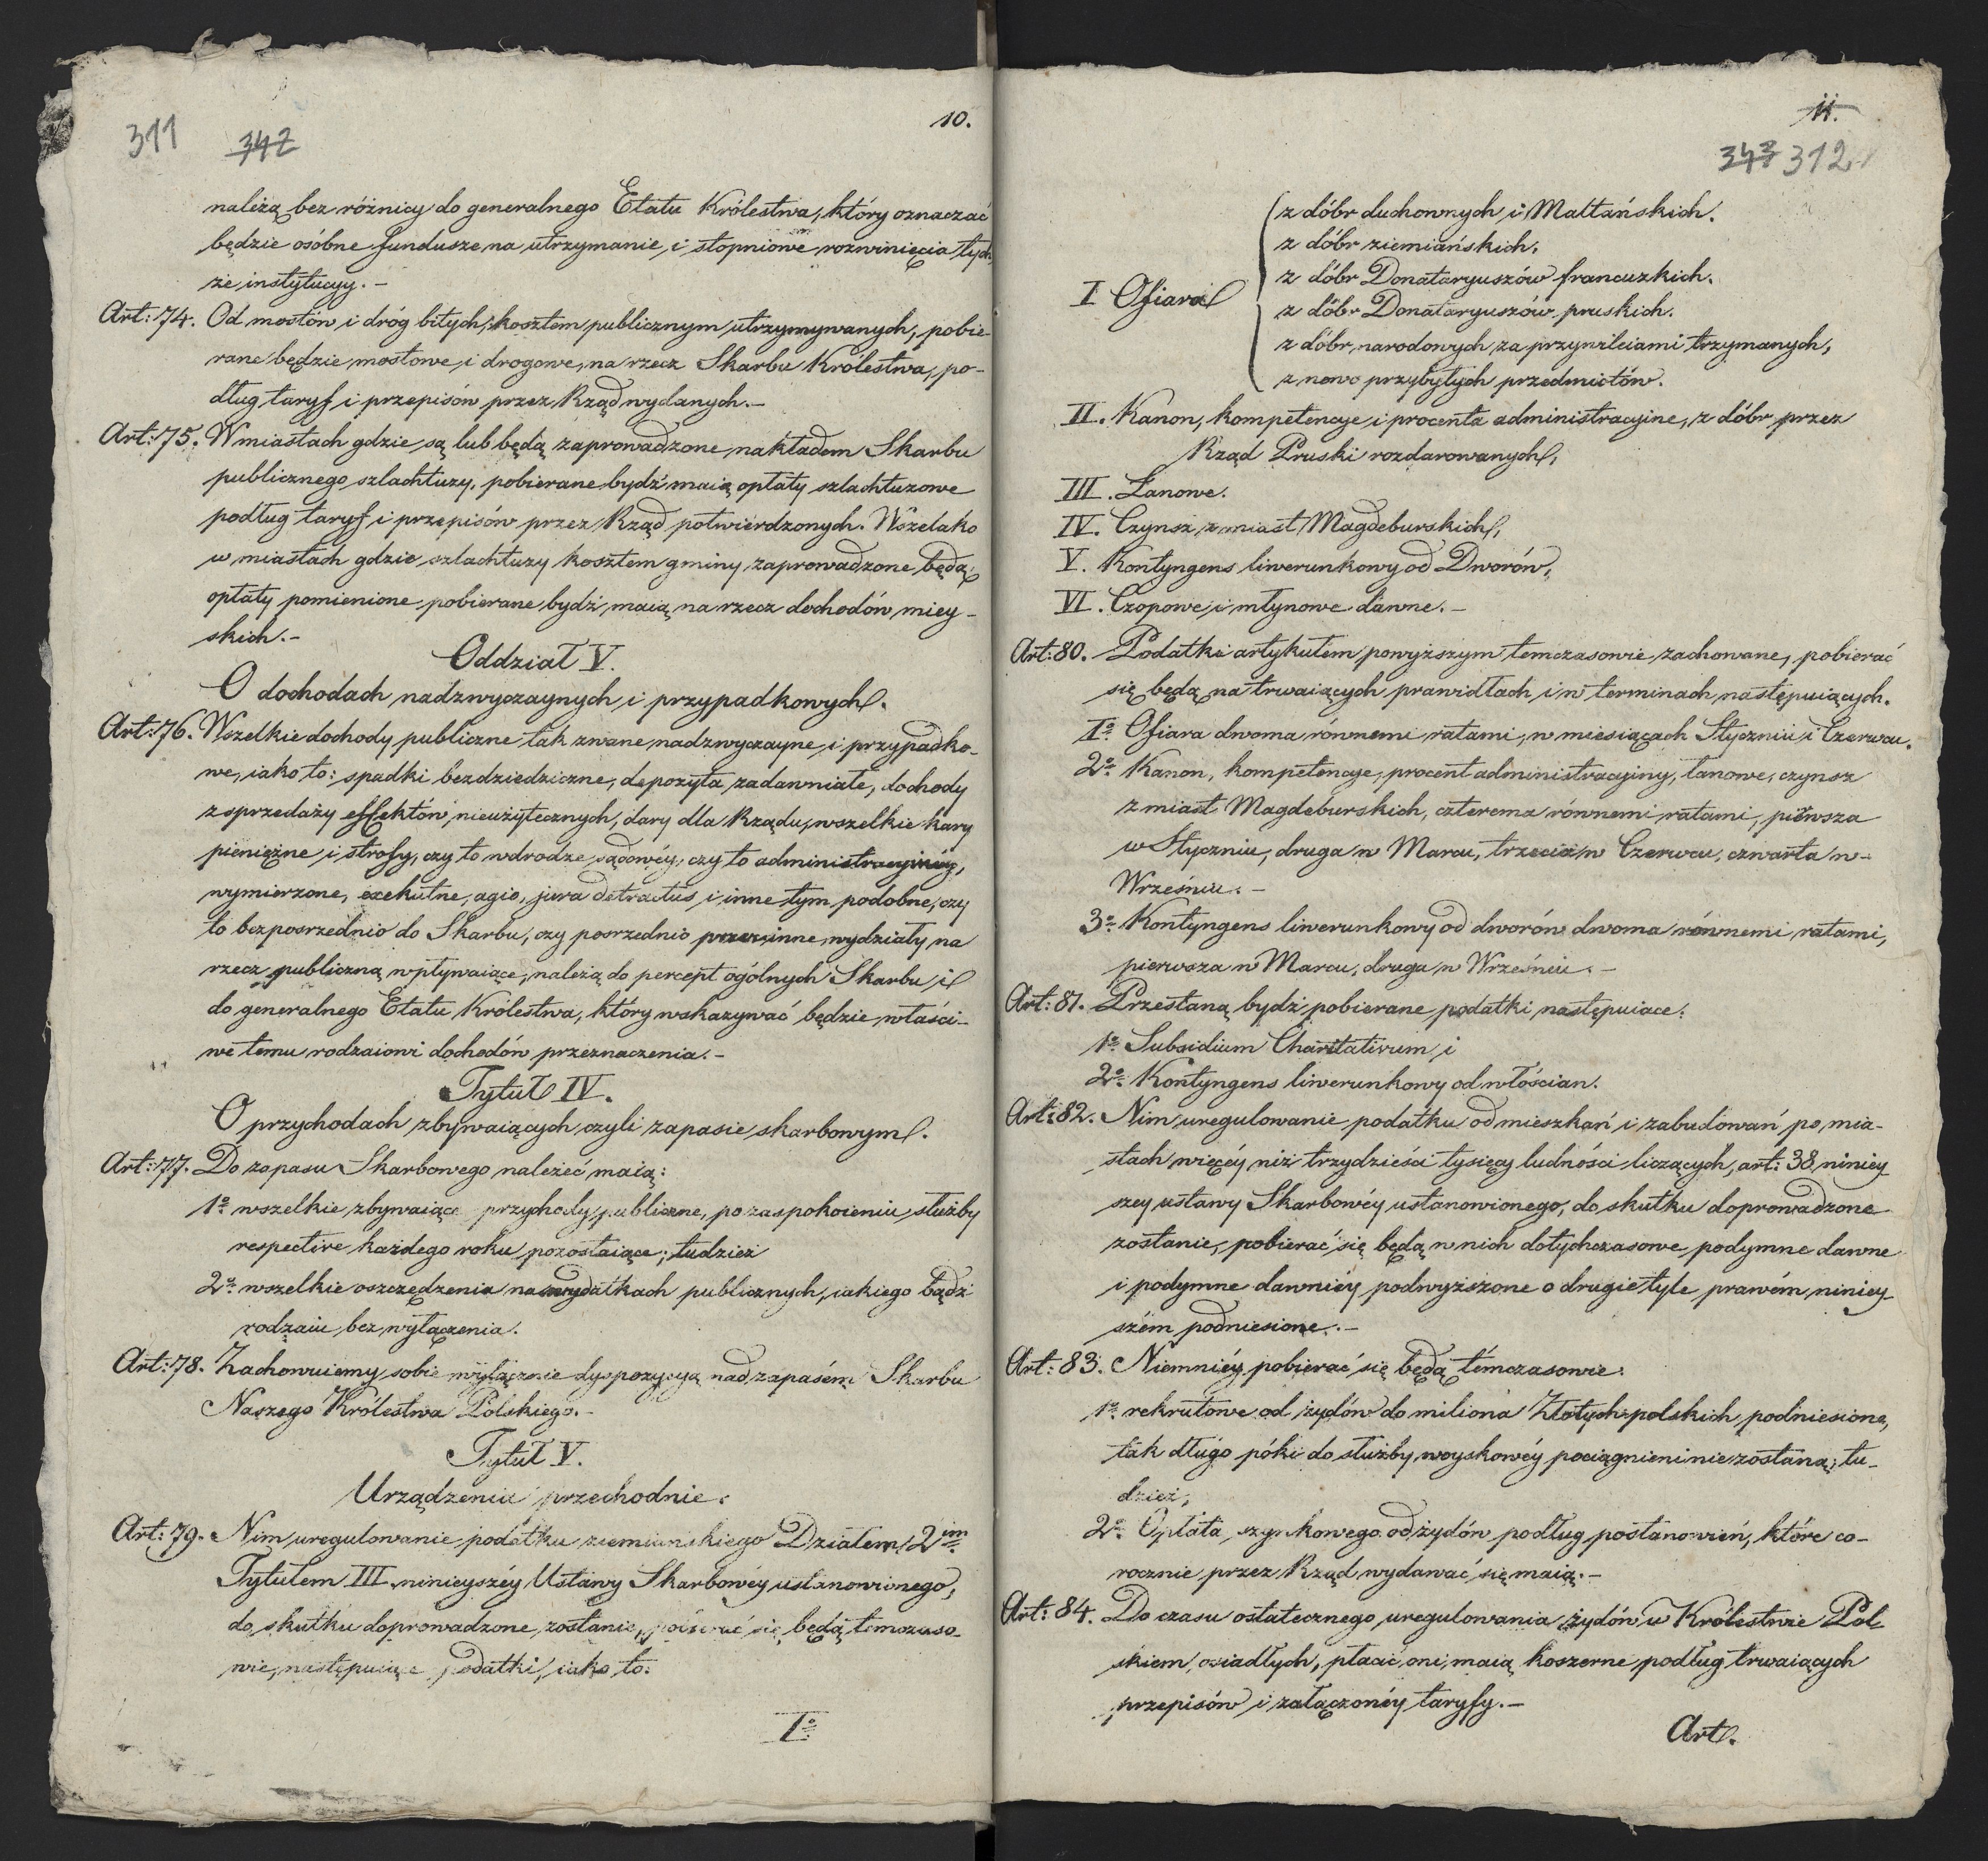 311
342
10.
należą bez różnicy do generalnego Etatu Królestwa, który oznaczać
będzie osóbne fundusze na utrzymanie i stopniowe rozwinięcia tych
że instytucyy.-
Art: 74. Od mostów i dróg bitych, kosztem publicznym utrzymywanych, pobie-
rane będzie mostowe i drogowe, na rzecz Skarbu Królestwa, po-
dług taryf i przepisów przez Rząd wydanych.-
Art: 75. W miastach gdzie są lub będą zaprowadzone nakładem Skarbu
publicznego szlachtuzy, pobierane bydź maią opłaty szlachtuzowe
podług taryf i przepisów przez Rząd potwierdzonych. Wszelako
w miastach gdzie szlachtuzy kosztem gminy zaprowadzone będą,
opłaty pomienione pobierane bydź maią na rzecz dochodów miey-
skich.-
Oddział V.
O dochodach nadzwyczaynych i przypadkowych.
Art: 76. Wszelkie dochody publiczne tak zwane nadzwyczayne i przypadko-
we, iako to: spadki bezdziedziczne, depozyta zadawniałe, dochody
z sprzedaży effektów nieużytecznych, dary dla Rządu, wszelkie kary
pieniężne i strofy, czy to w drodze sądowéy, czy to administracyinéy,
wymierzone, exekutne, agio, jura detractus i inne tym podobne, czy
to bezposrzednio do Skarbu, czy posrzednio przez inne wydziały na
rzecz publiczną wpływaiące, należą do percept ogólnych Skarbu i
do generalnego Etatu Królestwa, który wskazywać będzie właści-
we temu rodzaiowi dochodów przeznaczenia.-
Tytuł IV.
O przychodach zbywaiących czyli zapasie skarbowym.
Art: 77. Do zapasu Skarbowego należeć maią:
1º wszelkie zbywaiące przychody publiczne, po zaspokoieniu służby
respective każdego roku pozostaiące; tudzież
2º wszelkie oszczędzenia na wydatkach publicznych, iakiego bądź
rodzaiu bez wyłączenia.
Art: 78. Zachowuiemy sobie wyłącznie dyspozycyą nad zapasém Skarbu
Naszego Królestwa Polskiego.-
Tytuł V.
Urządzenia przechodnie.
Art: 79. Nim uregulowanie podatku ziemianskiego Działem 2im
Tytułem III ninieyszéy Ustawy Skarbowéy ustanowionego,
do skutku doprowadzone zostanie, pobierać się będą temczaso-
wie, następuiące podatki, iako to:
Iº
11.
343 312
z dóbr duchownych i Maltańskich.
z dóbr ziemiańskich,
z dóbr Donataryuszów francuzkich.
I Ofiara
z dóbr Donataryuszów pruskich.
z dóbr narodowych za przywileiami trzymanych,
z nowo przybyłych przedmiotów.
II. Kanon, kompetencye i procenta administracyine, z dóbr przez
Rząd Pruski rozdarowanych,
III. Łanowe.
IV. Czynsz z miast Magdeburskich,
V. Kontyngens liwerunkowy od Dworów,
VI. Czopowe i młynowe dawne.-
Art: 80. Podatki artykułem powyższym temczasowie zachowane, pobierać
się będą na trwaiących prawidłach i w terminach następuiących.
Iº Ofiara dwoma równemi ratami, w miesiącach Styczniu i Czerwcu.
2º Kanon, kompetencye, procent administracyiny, łanowe, czynsz
z miast Magdeburskich, czterema równemi ratami, pierwsza
w Styczniu, druga w Marcu, trzecia w Czerwcu, czwarta w-
Wrześniu.-
3º Kontyngens liwerunkowy od dworów dwoma równemi ratami,
pierwsza w Marcu, druga w Wrześniu.-
Art: 81. Przestaną bydź pobierane podatki następuiące:
1º Subsidium Charitativum i
2º Kontyngens liwerunkowy od włóścian.
Art: 82. Nim uregulowanie podatku od mieszkań i zabudowań po mia-
stach więcéy niż trzydzieści tysięcy ludności liczących, art: 38 niniey-
szey ustawy Skarbowéy ustanowionego, do skutku doprowadzone
zostanie, pobierać się będą w nich dotychczasowe podymne dawne
i podymne dawniéy podwyższone o drugie tyle prawém niniey-
szém podniesione.-
Art: 83. Niemniéy pobierać się będą témczasowie.
1º rekrutowe od żydów do miliona Złotych polskich podniesione,
tak długo póki do służby woyskowéy pociągnieni nie zostaną; tu-
dzież,
2º Opłata szynkowego od żydów podług postanowień, które co-
rocznie przez Rząd wydawać się maią.-
Art: 84. Do czasu ostatecznego uregulowania żydów w Królestwie Pol-
skiem osiadłych, płacić oni maią koszerne podług trwaiących
przepisów i załączonéy taryfy.-
Art.